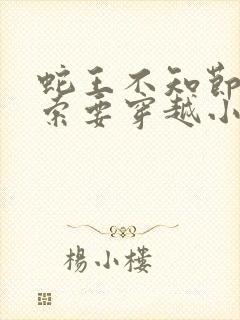 蛇王不知節
索要穿越小
楊小樓